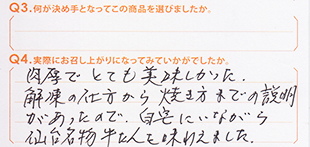 Q3.何が決め手となってこの商品を選びましたか。
Q4.実際にお召し上がりになってみていかがでしたか。
肉厚でとても美味しかった.
解凍の仕方から焼き方までの説明
があったので.自宅にいながら
仙台名物牛たんを味わえました.